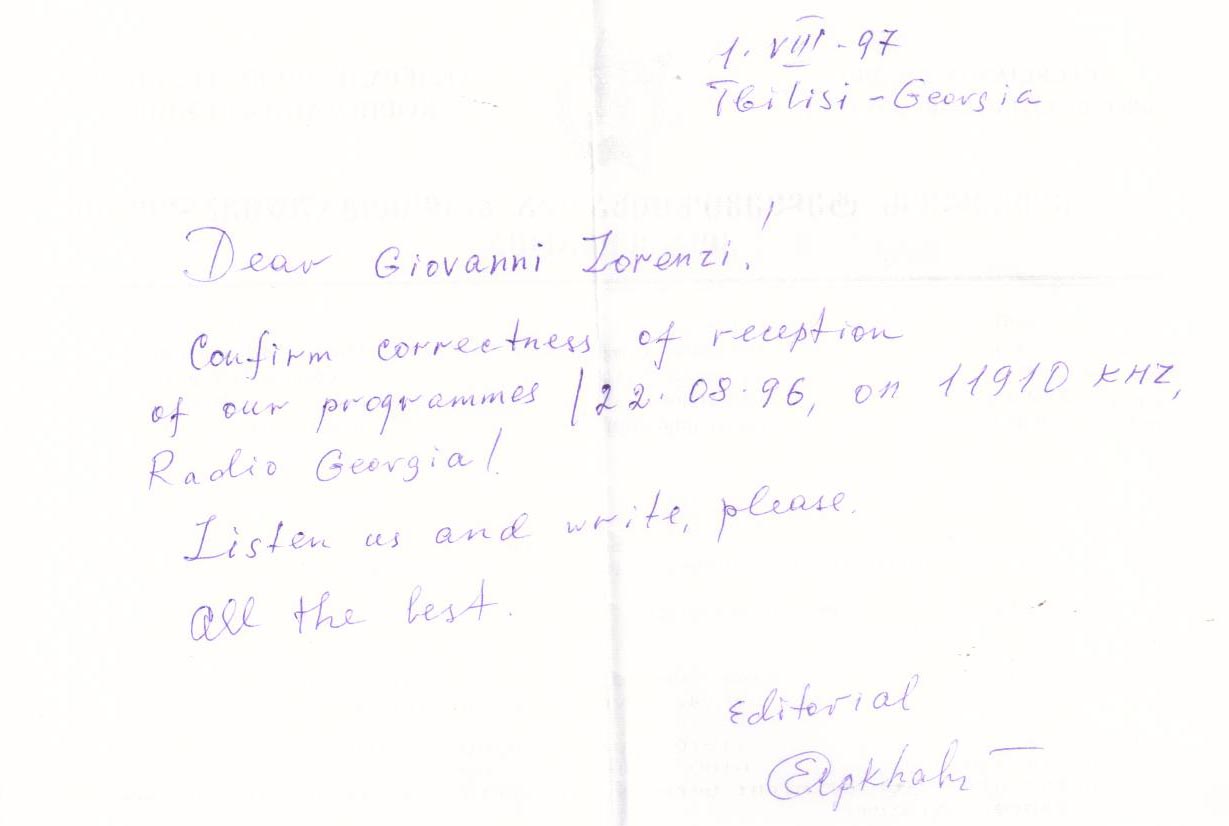 1. VIII - 97
Tbilisi - Georgia
Dear Giovanni Lorenzi!
Confirm correctness of reception
of our programmes /22.08.96, on 11910 KHZ,
Radio Georgia/.
Listen us and write, please.
All the best.
Editorial